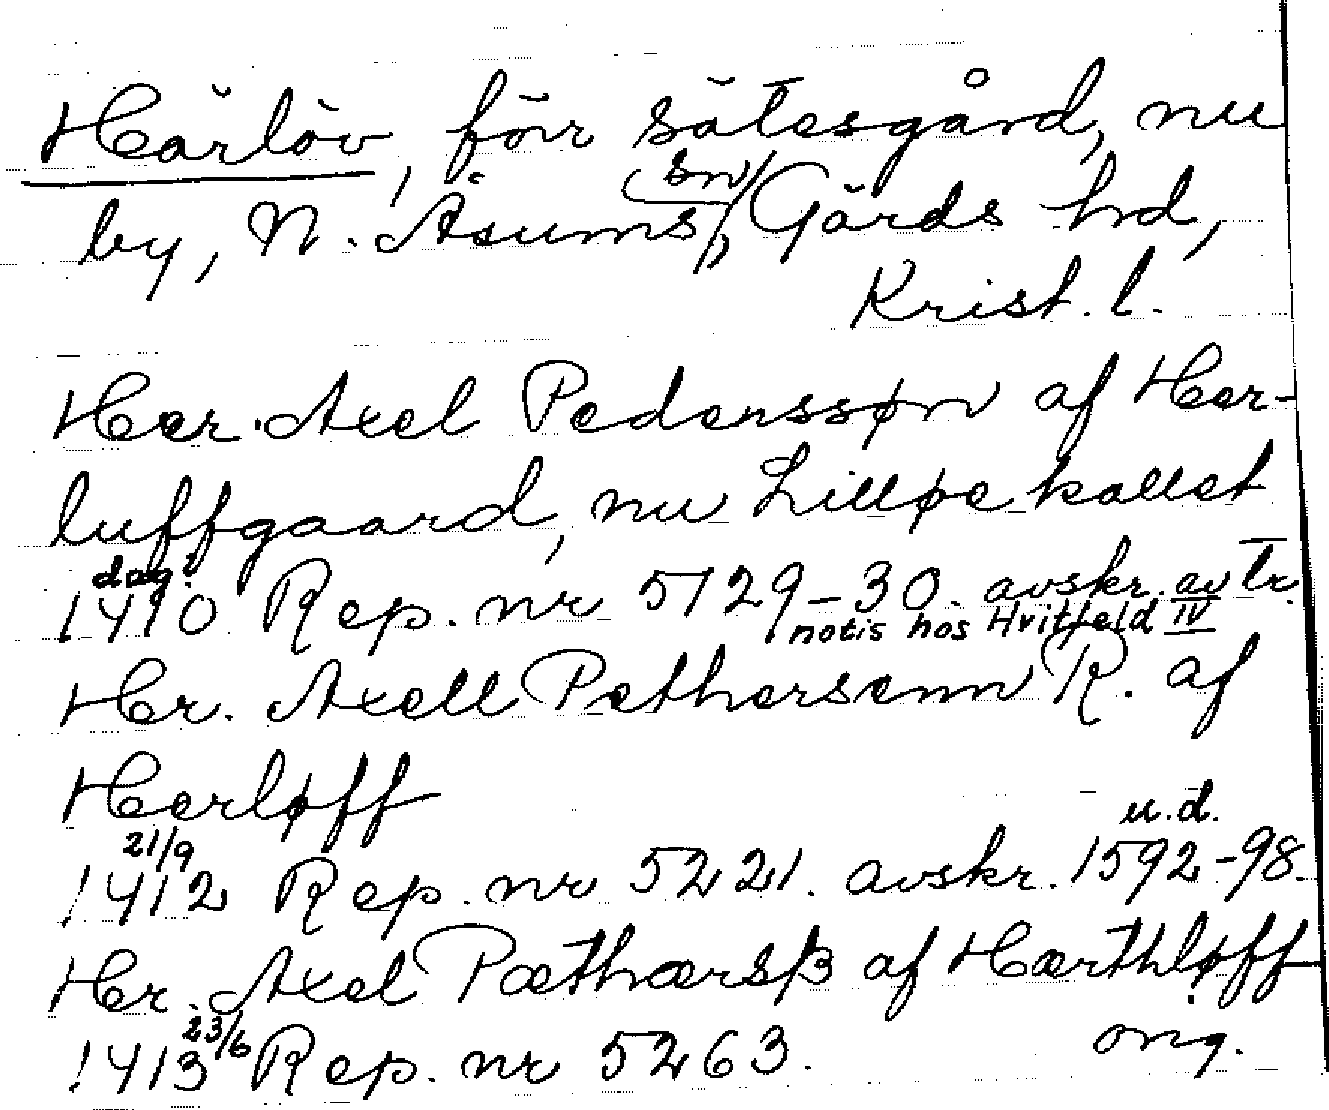 Härlöv, förr sätesgård, nu
by, N. Åsums (sn), Gärds hd,
Krist. l.
Her. Axel Pederssøn af Her-
luffgaard, nu Lilløe kallet
dag.
1410 Rep. nr 5129-30. avskr. av tr.
notis hos Hvitfeld IV
Her. Axell Pethersenn R. af
Herløff
u.d.
21/9
1412 Rep. nr 5221. avskr. 1592-98.
Her. Axel Pæthærsß af Hærthløff
23/6
1413 Rep. nr 5263. orig.